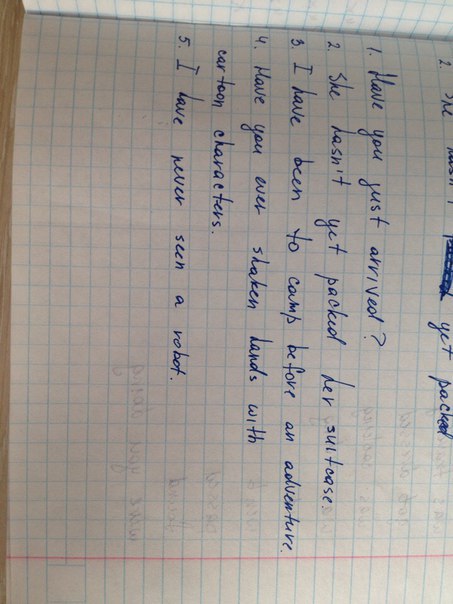 2. She hasn't yet packed
1. Have you just arrived?
2. She hasn't yet packed her suitcase.
3 I have been to camp before an adventure.
4. Have you ever shaken hands with
cartoon characters.
5. I have never seen a robot.